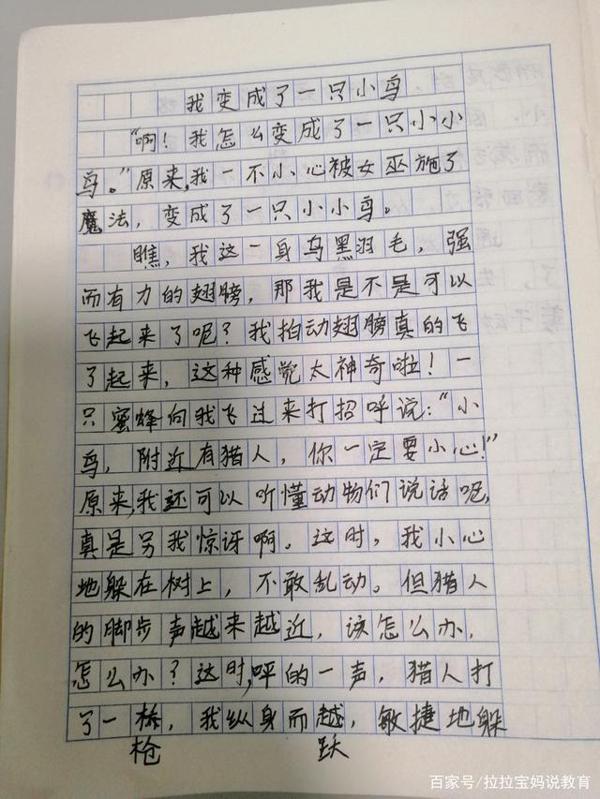 我变成了一只小鸟
“啊！我怎么变成了一只小小
鸟。”原来,我一不小心被女巫施了
魔法，变成了一只小小鸟。
瞧，我这一身乌黑羽毛，强
而有力的翅膀，那我是不是可以
飞起来了呢？我拍动翅膀真的飞
了起来，这种感觉太神奇啦！一
只蜜蜂向我飞过来打招呼说：“小
鸟，附近有猎人，你一定要小心！”
原来,我还可以听懂动物们说话呢，
真是另我惊讶啊。这时，我小心
地躲在树上，不敢乱动。但猎人
的脚步声越来越近，该怎么办，
怎么办？这时,呯的一声，猎人打
了一，我纵身而越，敏捷地躲
枪 跃
百家号/拉拉宝妈说教育